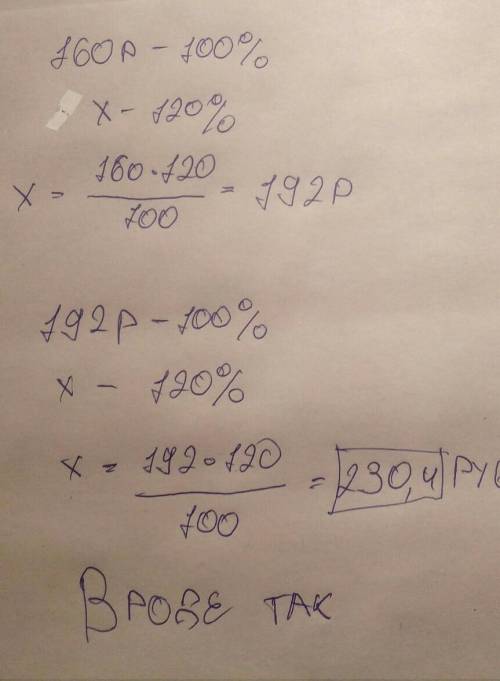 160р - 100%
х - 120%
х = 160·120 / 100 = 192р
192р - 100%
х - 120%
х = 192·120 / 100 = 230,4 РУ
ВРОДЕ ТАК